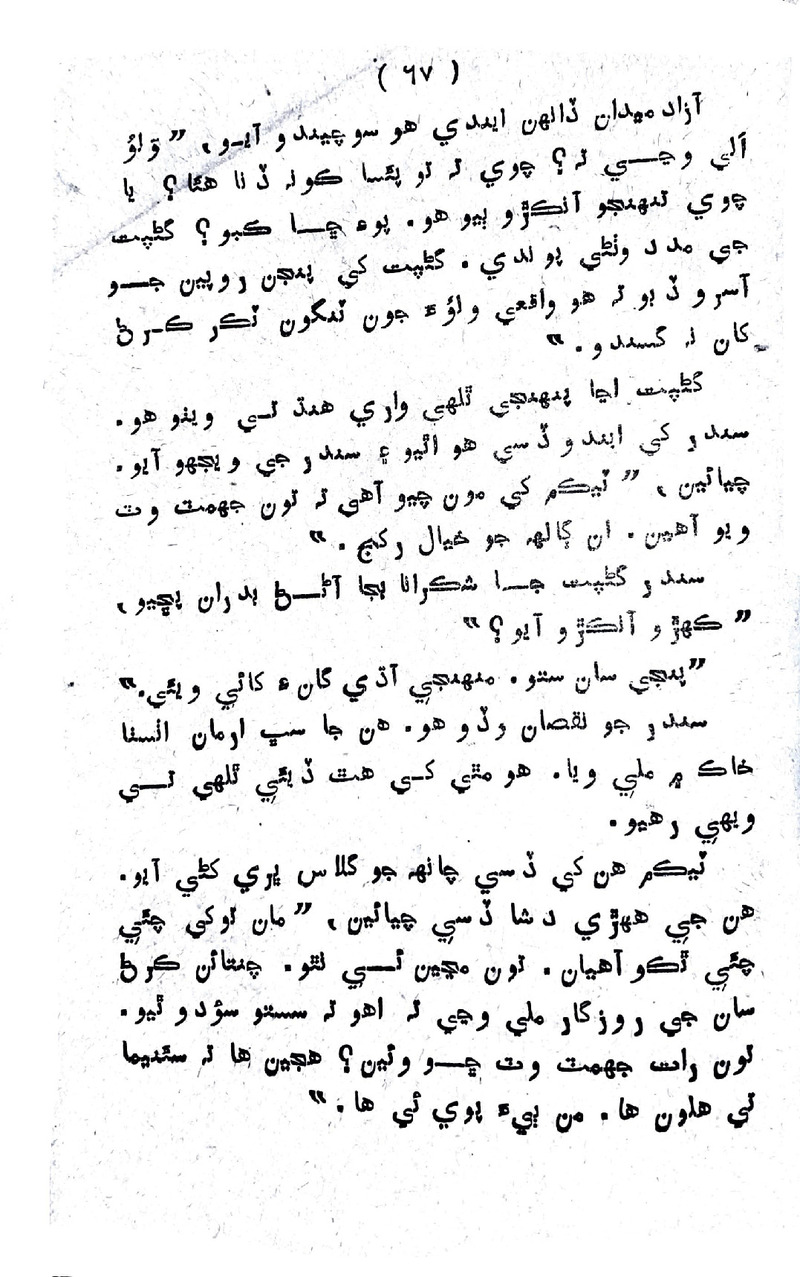 ( ٦٧ )
آزاد ميدان ڏانهن ايندي هو سوچيندو آيو، ”ولوُ
اُلي وڃي ته؟ چوي ته تو پئسا ڪونه ڏنا هئا؟ يا
چوي تنهنجو آنڪڙو ٻيو هو. پوءِ ڇا ڪبو؟ گڻپت
جي مدد وٺڻي پوندي. گڻپت کي پنجن روپين جو
آسرو ڏبو ته هو واقعي ولوُءَ جون ٽنگون ٽڪر ڪرڻ
کان نه گسندو.“
گڻپت اڃا پنهنجي ٿلهي واري هنڌ تي ويٺو هو.
سندر کي ايندو ڏسي هو اٿيو ۽ سندر جي ويجهو آيو.
چيائين، ”ٽيڪم کي مون چيو آهي ته تون جهمٽ وٽ
ويو آهين. ان ڳالهه جو خيال رکج.“
سندر گڻپت جا شڪرانا بجا آڻڻ بدران پڇيو،
”ڪهڙو آنڪڙو آيو؟“
”پنجي سان ستو. منهنجي آڌي گانءِ کائي ويئي.“
سندر جو نقصان وڏو هو. هن جا سڀ ارمان
خاڪ ۾ ملي ويا. هو مٿي کي هٿ ڏيئي ٿلهي تي
ويهي رهيو.
ٽيڪم هن کي ڏسي چانهه جو گلاس ڀري کڻي آيو.
هن جي ههڙي دشا ڏسي چيائين، ”مان توکي چئي
چئي ٿڪو آهيان. تون مڃين ئي نٿو. چنتائن ڪرڻ
سان جي روزگار ملي وڃي ته اهو ته سستو سؤدو ٿيو.
تون رات جهمٽ وٽ ڇو وئين؟ هجين ها ته سئنيما
تي هلون ها. من ٻيءَ پوي ئي ها.“